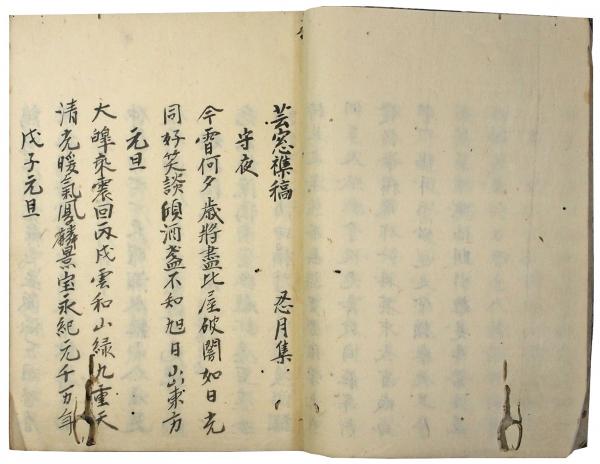 芸窓襍稿　忍月集
守夜
今宵何夕歳將盡比屋破闇如日光
同好笑談傾酒盞不知旭日出東方
元旦
大皞乘震回丙戌雲和山緑九重天
清光暖氣鳳麟景宝永紀元千万年
戊子元旦